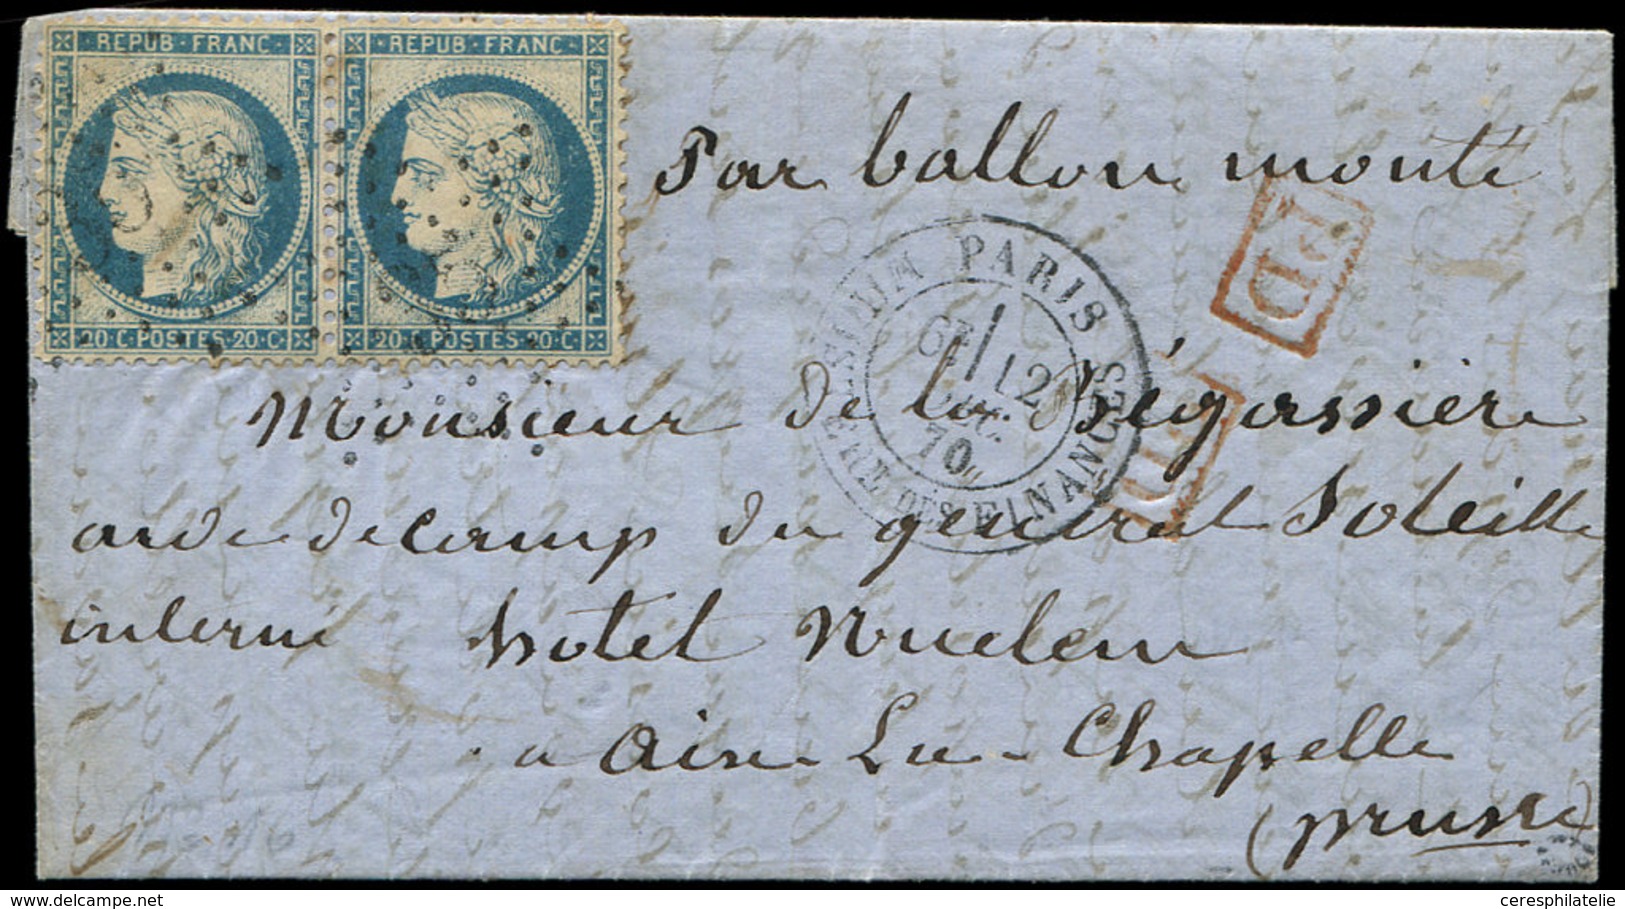 REPUB·FRANC REPUB·FRANC
20·C·POSTES·20·C 20·C·POSTES·20·C
Par ballon monté
PD
PARIS
6E 12
DEC.
70
DES FINANCES
PD
Monsieur de la Bégassière
aide de camp du général Soleille
interné hotel Nuelem
a Aix-La-Chapelle
(prusse)
ceresphilatelie